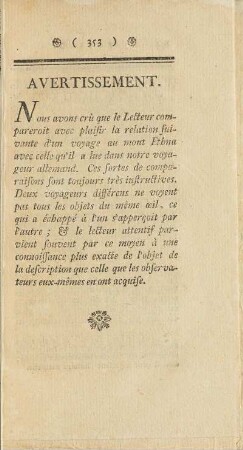 ( 353 )
AVERTISSEMENT.
Nous avons crû que le Lecteur com-
pareroit avec plaisir la relation sui-
vante d'un voyage au mont Ethna
avec celle qu'il a lue dans notre voya-
geur allemand. Ces sortes de compa-
raisons sont toujours très instructives.
Deux voyageurs différens ne voyent
pas tous les objets du même œil, ce
qui a échappé à l'un s'apperçoit par
l'autre; & le lecteur attentif par-
vient souvent par ce moyen à une
connoissance plus exacte de l'objet de
la description que celle que les observa-
teurs eux-mêmes en ont acquise.